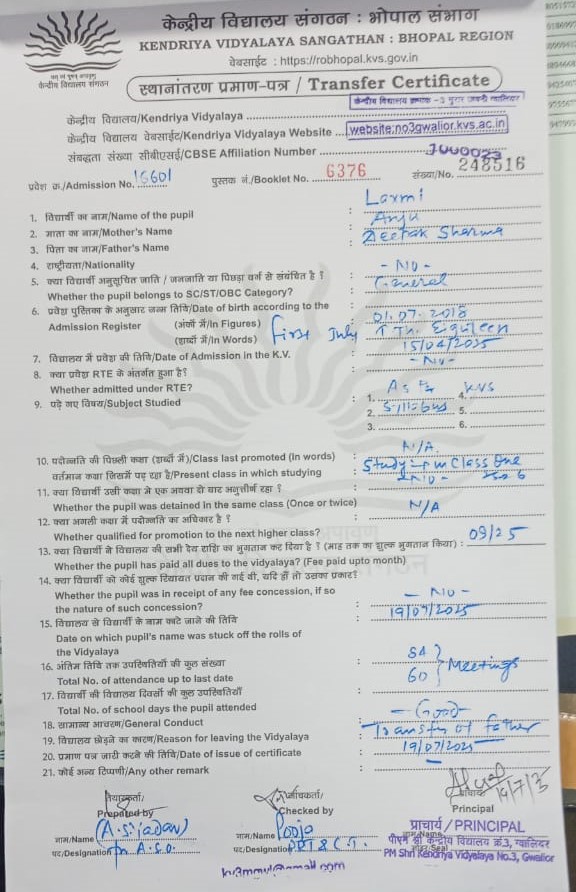 केन्द्रीय विद्यालय संगठन : भोपाल संभाग
KENDRIYA VIDYALAYA SANGATHAN : BHOPAL REGION
वेबसाईट : https://robhopal.kvs.gov.in
केन्द्रीय विद्यालय संगठन
स्थानांतरण प्रमाण-पत्र / Transfer Certificate
केन्द्रीय विद्यालय क्रमांक -3 मुरार छावनी ग्वालियर
केन्द्रीय विद्यालय/Kendriya Vidyalaya
केन्द्रीय विद्यालय वेबसाईट/Kendriya Vidyalaya Website website:no3gwalior.kvs.ac.in
संबद्धता संख्या सीबीएसई/CBSE Affiliation Number 1000023
प्रवेश क्र./Admission No. 16601 पुस्तक नं./Booklet No. 6376 संख्या/No. 248516
1. विद्यार्थी का नाम/Name of the pupil : Laxmi
2. माता का नाम/Mother's Name : Anju
3. पिता का नाम/Father's Name : Deepak Sharma
4. राष्ट्रीयता/Nationality :
5. क्या विद्यार्थी अनुसूचित जाति / जनजाति या पिछड़ा वर्ग से संबंधित है ? : - No -
Whether the pupil belongs to SC/ST/OBC Category? General
6. प्रवेश पुस्तिका के अनुसार जन्म तिथि/Date of birth according to the
Admission Register (अंकों में/In Figures) : 01.07.2018
(शब्दों में/In Words) First July
7. विद्यालय में प्रवेश की तिथि/Date of Admission in the K.V. : 15/04/2025
8. क्या प्रवेश RTE के अंतर्गत हुआ है? : - No -
Whether admitted under RTE?
9. पढ़े गए विषय/Subject Studied : 1. As per 4. KVS
2. Syllabus 5.
3. 6.
10. पदोन्नति की पिछली कक्षा (शब्दों में)/Class last promoted (In words) : N/A
वर्तमान कक्षा जिसमें पढ़ रहा है/Present class in which studying : Studying in Class One
11. क्या विद्यार्थी उसी कक्षा में एक अथवा दो बार अनुत्तीर्ण रहा ? : - No -
Whether the pupil was detained in the same class (Once or twice)
12. क्या अगली कक्षा में पदोन्नति का अधिकार है ? : N/A
Whether qualified for promotion to the next higher class?
13. क्या विद्यार्थी ने विद्यालय की सभी देय राशि का भुगतान कर दिया है ? (माह तक का शुल्क भुगतान किया) : 09/25
Whether the pupil has paid all dues to the vidyalaya? (Fee paid upto month)
14. क्या विद्यार्थी को कोई शुल्क रियायत प्रदान की गई थी, यदि हाँ तो उसका प्रकार?
Whether the pupil was in receipt of any fee concession, if so : - No -
the nature of such concession?
15. विद्यालय से विद्यार्थी के नाम काटे जाने की तिथि : 19/07/2025
Date on which pupil's name was stuck off the rolls of
the Vidyalaya
16. अंतिम तिथि तक उपस्थितियों की कुल संख्या : 54
Total No. of attendance up to last date Meetings
17. विद्यार्थी की विद्यालय दिवसों की कुल उपस्थितियाँ : 60
Total No. of school days the pupil attended
18. सामान्य आचरण/General Conduct : - Good -
19. विद्यालय छोड़ने का कारण/Reason for leaving the Vidyalaya : Transfer of father
20. प्रमाण पत्र जारी करने की तिथि/Date of issue of certificate : 19/07/2025
21. कोई अन्य टिप्पणी/Any other remark :
तैयारकर्ता/ जाँचकर्ता/ प्राचार्य/
Prepared by Checked by Principal
नाम/Name (A.S. Jadav) नाम/Name Pooja
पद/Designation A.S.O. पद/Designation PRT & C.T.
प्राचार्य / PRINCIPAL
पीएम श्री केन्द्रीय विद्यालय क्र.3, ग्वालियर
PM Shri Kendriya Vidyalaya No.3, Gwalior